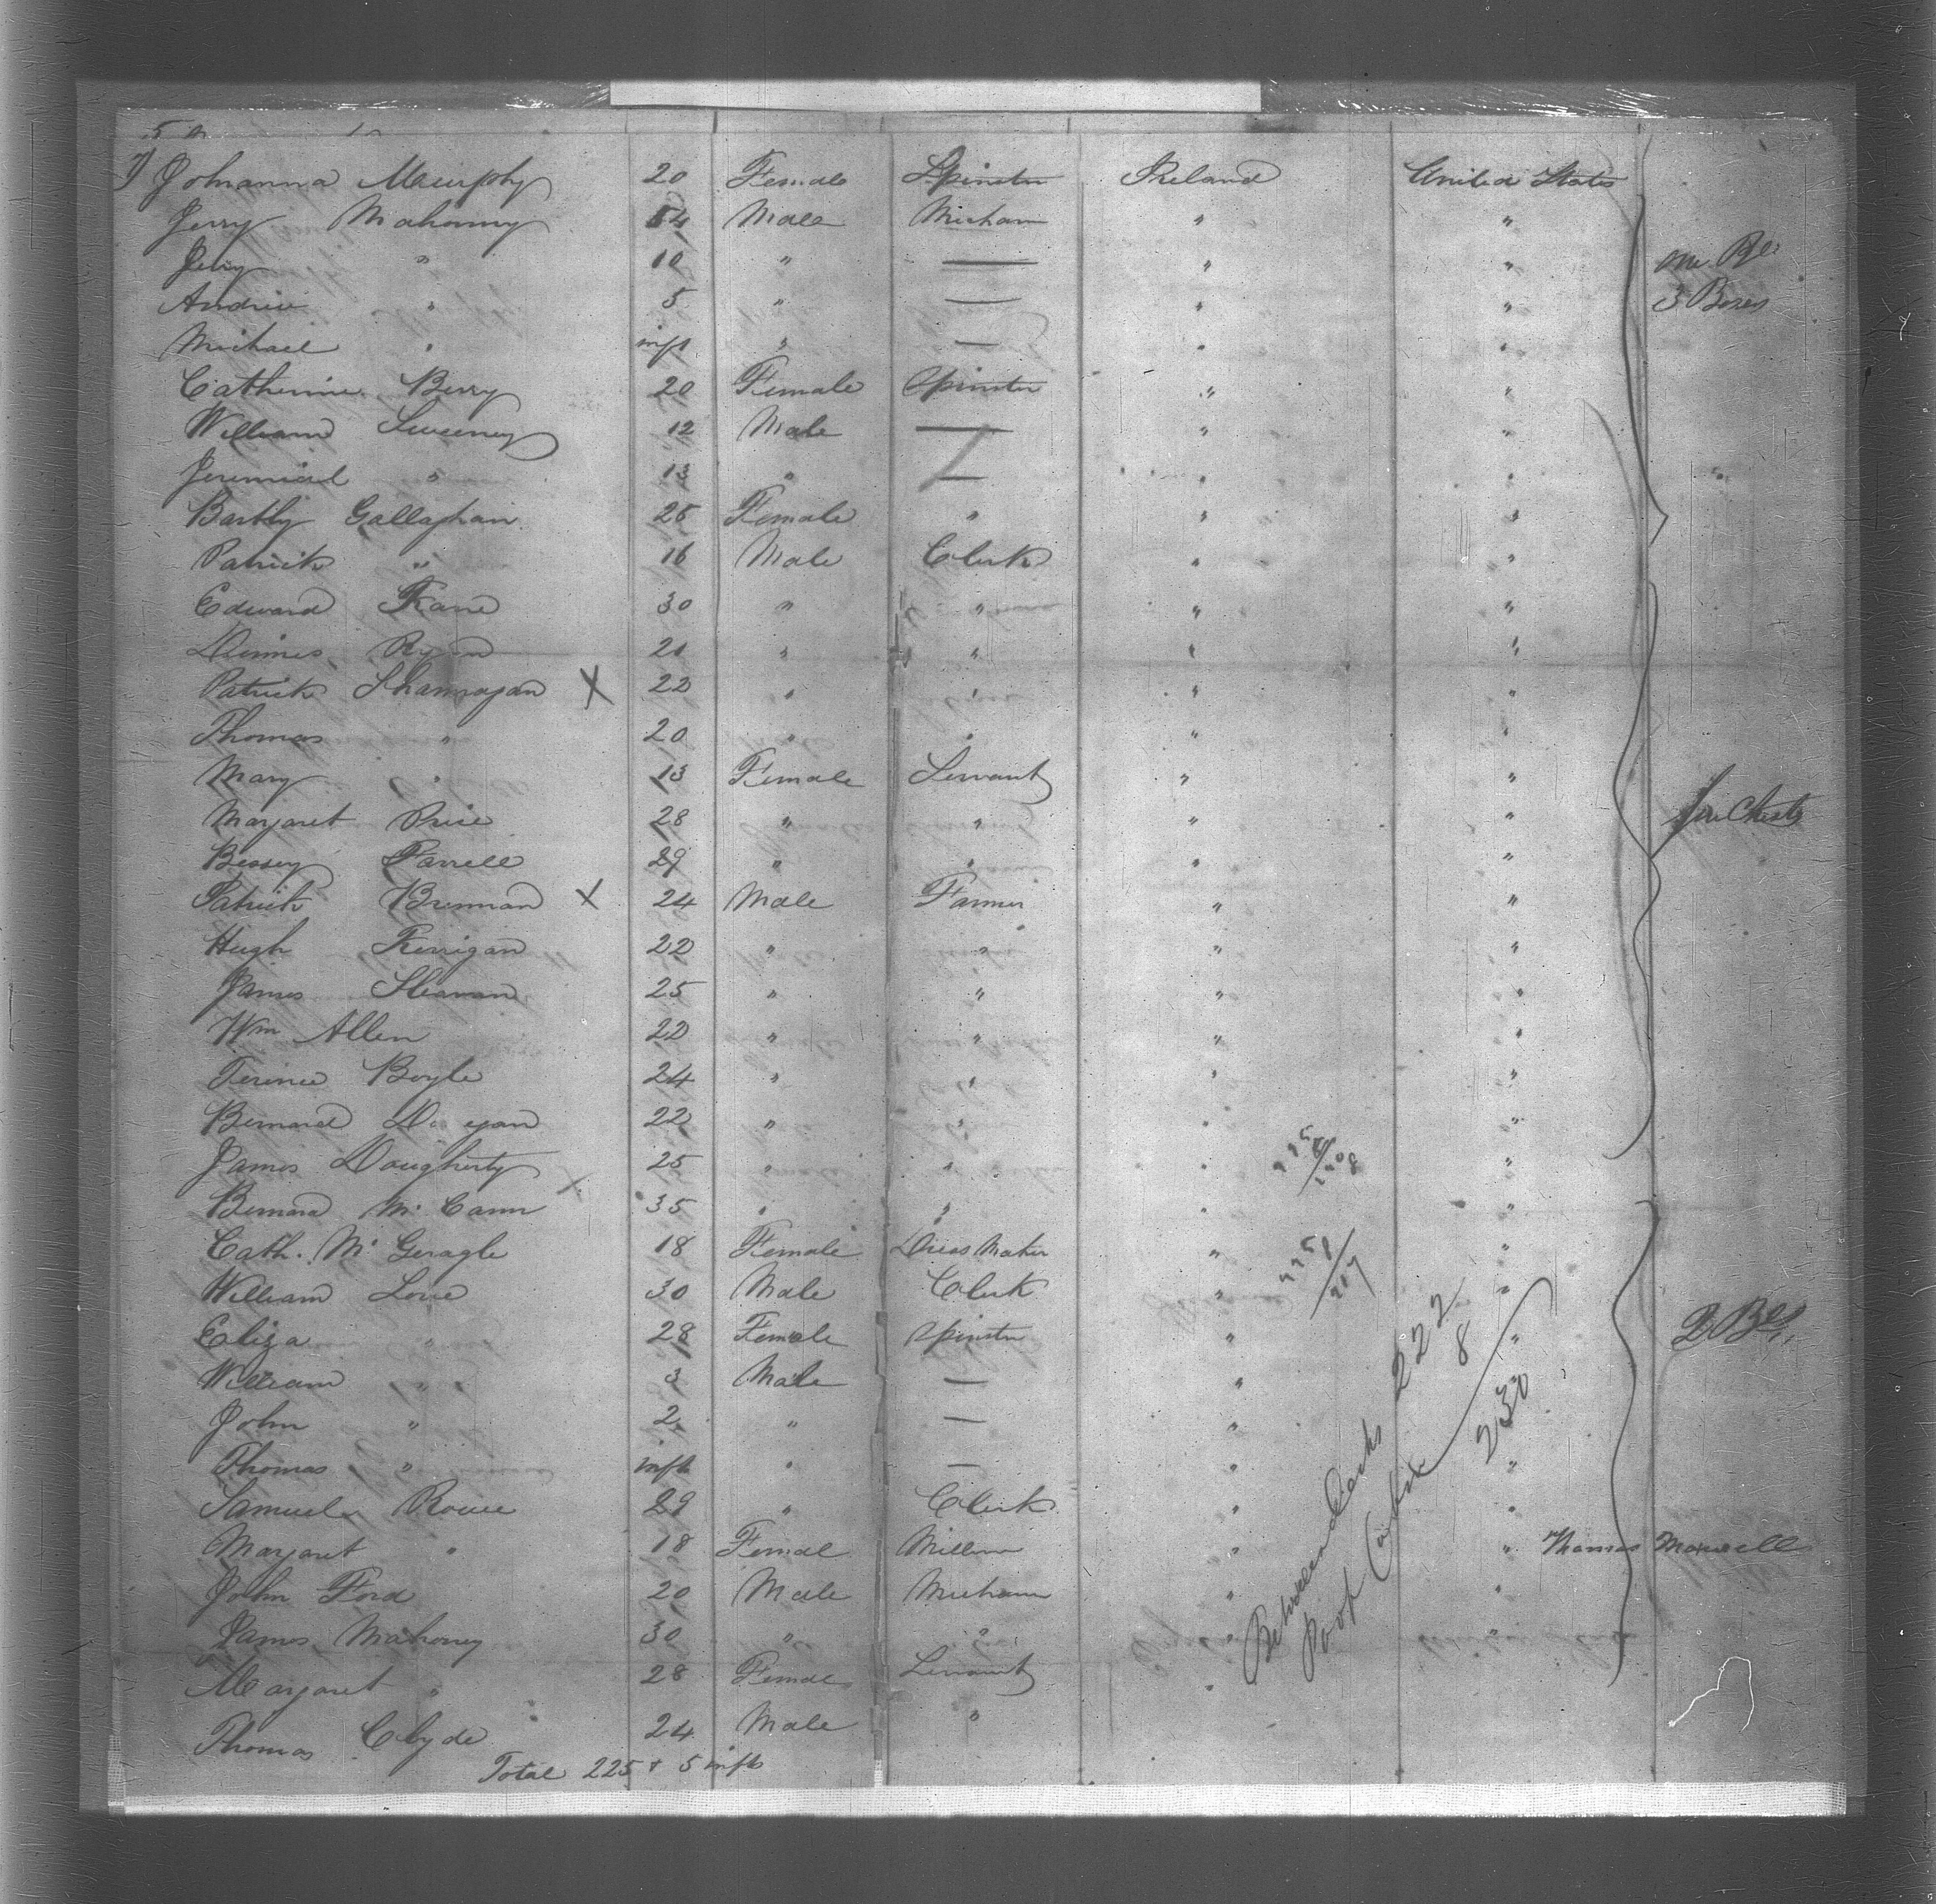 Johanna Murphy 20 Female Spinster Ireland United States
Jerry Mahonny 54 Male Mechan " "
Jerry " 10 " — " " One Bl
Andrew " 5 " — " " 3 Boxes
Michael " inft " — " "
Catherine Berry 20 Female Spinster " "
William Sweeney 12 Male — " "
Jeremiah " 13 " — " "
Bartly Gallaghan 25 Female " " "
Patrick " 16 Male Clerk " "
Edward Kane 30 " " " "
Dinnis Ryan 21 " " " "
Patrick Shannagan X 22 " " " "
Thomas " 20 " " " "
Mary " 13 Female Servant " "
Margaret Price 28 " " " " Chests
Bessey Farrell 29 " " " "
Patrick Brennan X 24 Male Farmer " "
Hugh Kerrigan 22 " " " "
James 25 " " " "
Wm Allen 22 " " " "
Terince Boyle 24 " " " "
Bernard 22 " " " "
James Dougherty 25 " " " "
Bernard Mc Cann 35 " " " "
Cath. Mc Geragle 18 Female Dress Maker " "
William Love 30 Male Clerk " "
Eliza " 28 Female Spinster " " 2 Bls
William " 3 Male — " "
John " 2 " — " "
Thomas " inft " — " "
Samuel Rowe 29 " Clerk " "
Margaret " 18 Female Milliner " " Thomas Maxwell
John Ford 20 Male Mechan " "
James Mahoney 30 " " "
Margaret " 28 Female Servant "
Thomas Clyde 24 Male "
Total 225 + 5 infts
Between Decks 222
Poop Cabin 8
230